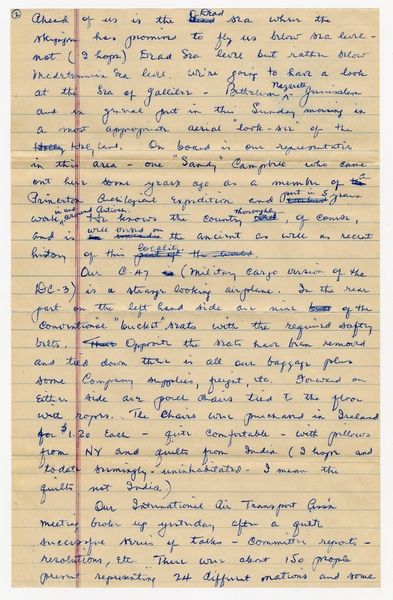 ②
Ahead of us is the Dead Sea where the
skipper has promised to fly us below sea level -
not (I hope) Dead Sea level but rather below
Mediterranean Sea level. We're going to have a look
at the Sea of Gallilee - Bethlehem Nazareth Jerusalem
and in general put in this Sunday morning in
a most appropriate aerial "look-see" of the
Holy Land. On board is our representative
in this area - one "Sandy" Campbell who came
out here some years ago as a member of a
Princeton Archological Expedition and put in 5 years
work in and around Antioch. He knows the country thoroughly, of course,
and is well versed on the ancient as well as recent
history of this locality.
Our C-47 (Military cargo version of the
DC-3) is a strange looking airplane. In the rear
part on the left hand side are nine of the
conventional "bucket" seats with the required safety
belts. Opposite the seats have been removed
and tied down there is all our baggage plus
some Company supplies, freight, etc. Forward on
either side are porch chairs tied to the floor
with ropes. The chairs were purchased in Ireland
for $1.20 each - quite comfortable - with pillows
from NY and quilts from India (I hope and
to date seemingly - uninhabitated - I mean the
quilts not India)
Our International Air Transport Ass'n
meeting broke up yesterday after a quite
successive series of talks - committee reports -
resolutions, etc. There were about 150 people
present representing 24 different nations and some